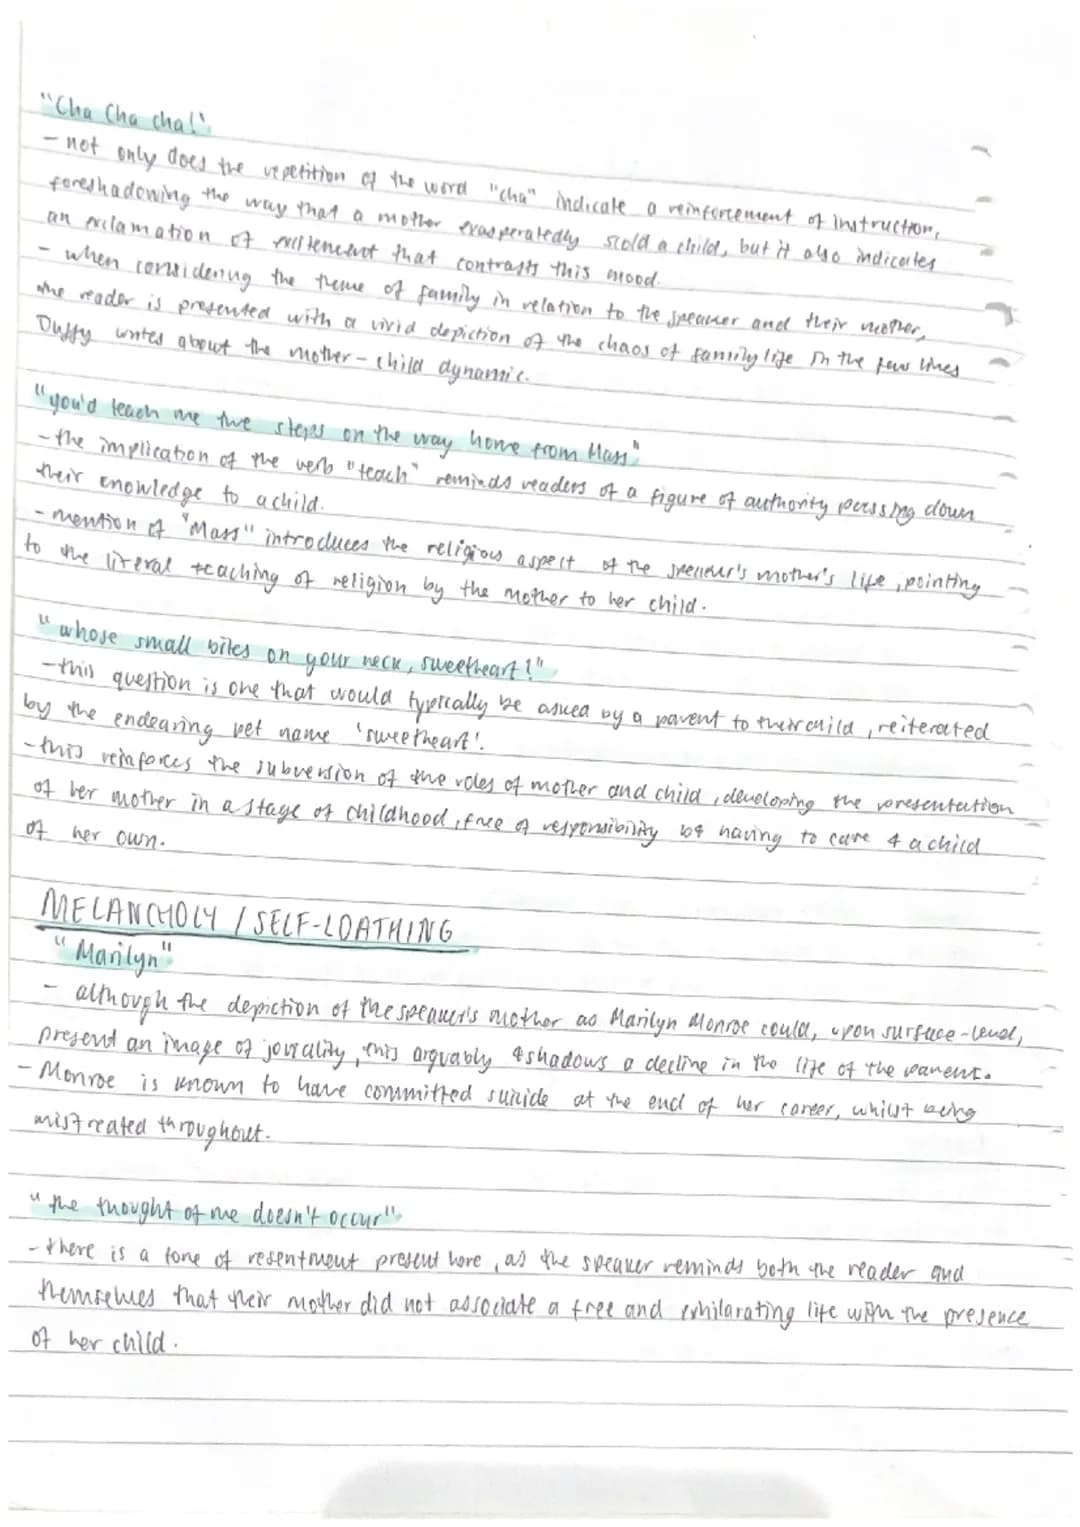 "Cha Cha cha!"
- not only does the repetition of the word "cha" indicate a reinforcement of instruction,
foreshadowing the way that a mother exasperatedly scold a child, but it also indicates
an exclamation of excitement that contrasts this mood.
- when considering the theme of family in relation to the speaker and their mother,
the reader is presented with a vivid depiction of the chaos of family life in the few lines
Duffy writes about the mother-child dynamic.
"you'd teach me the steps on the way home from Mass"
- the implication of the verb "teach" reminds readers of a figure of authority passing down
their knowledge to a child.
- mention of "Mass" introduces the religious aspect of the speaker's mother's life, pointing
to the literal teaching of religion by the mother to her child.
"whose small bites on your neck, sweetheart?"
- this question is one that would typically be asked by a parent to their child, reiterated
by the endearing pet name 'sweetheart'.
- this reinforces the subversion of the roles of mother and child, developing the presentation
of her mother in a stage of childhood, free of responsibility of having to care 4 a child
of her own.
MELANCHOLY / SELF-LOATHING
"Marilyn"
- although the depiction of the speaker's mother as Marilyn Monroe could, upon surface-level,
present an image of joviality, this arguably 4shadows a decline in the life of the parent.
- Monroe is known to have committed suicide at the end of her career, whilst being
mistreated throughout.
"the thought of me doesn't occur"
- there is a tone of resentment present here, as the speaker reminds both the reader and
themselves that their mother did not associate a free and exhilarating life with the presence
of her child.